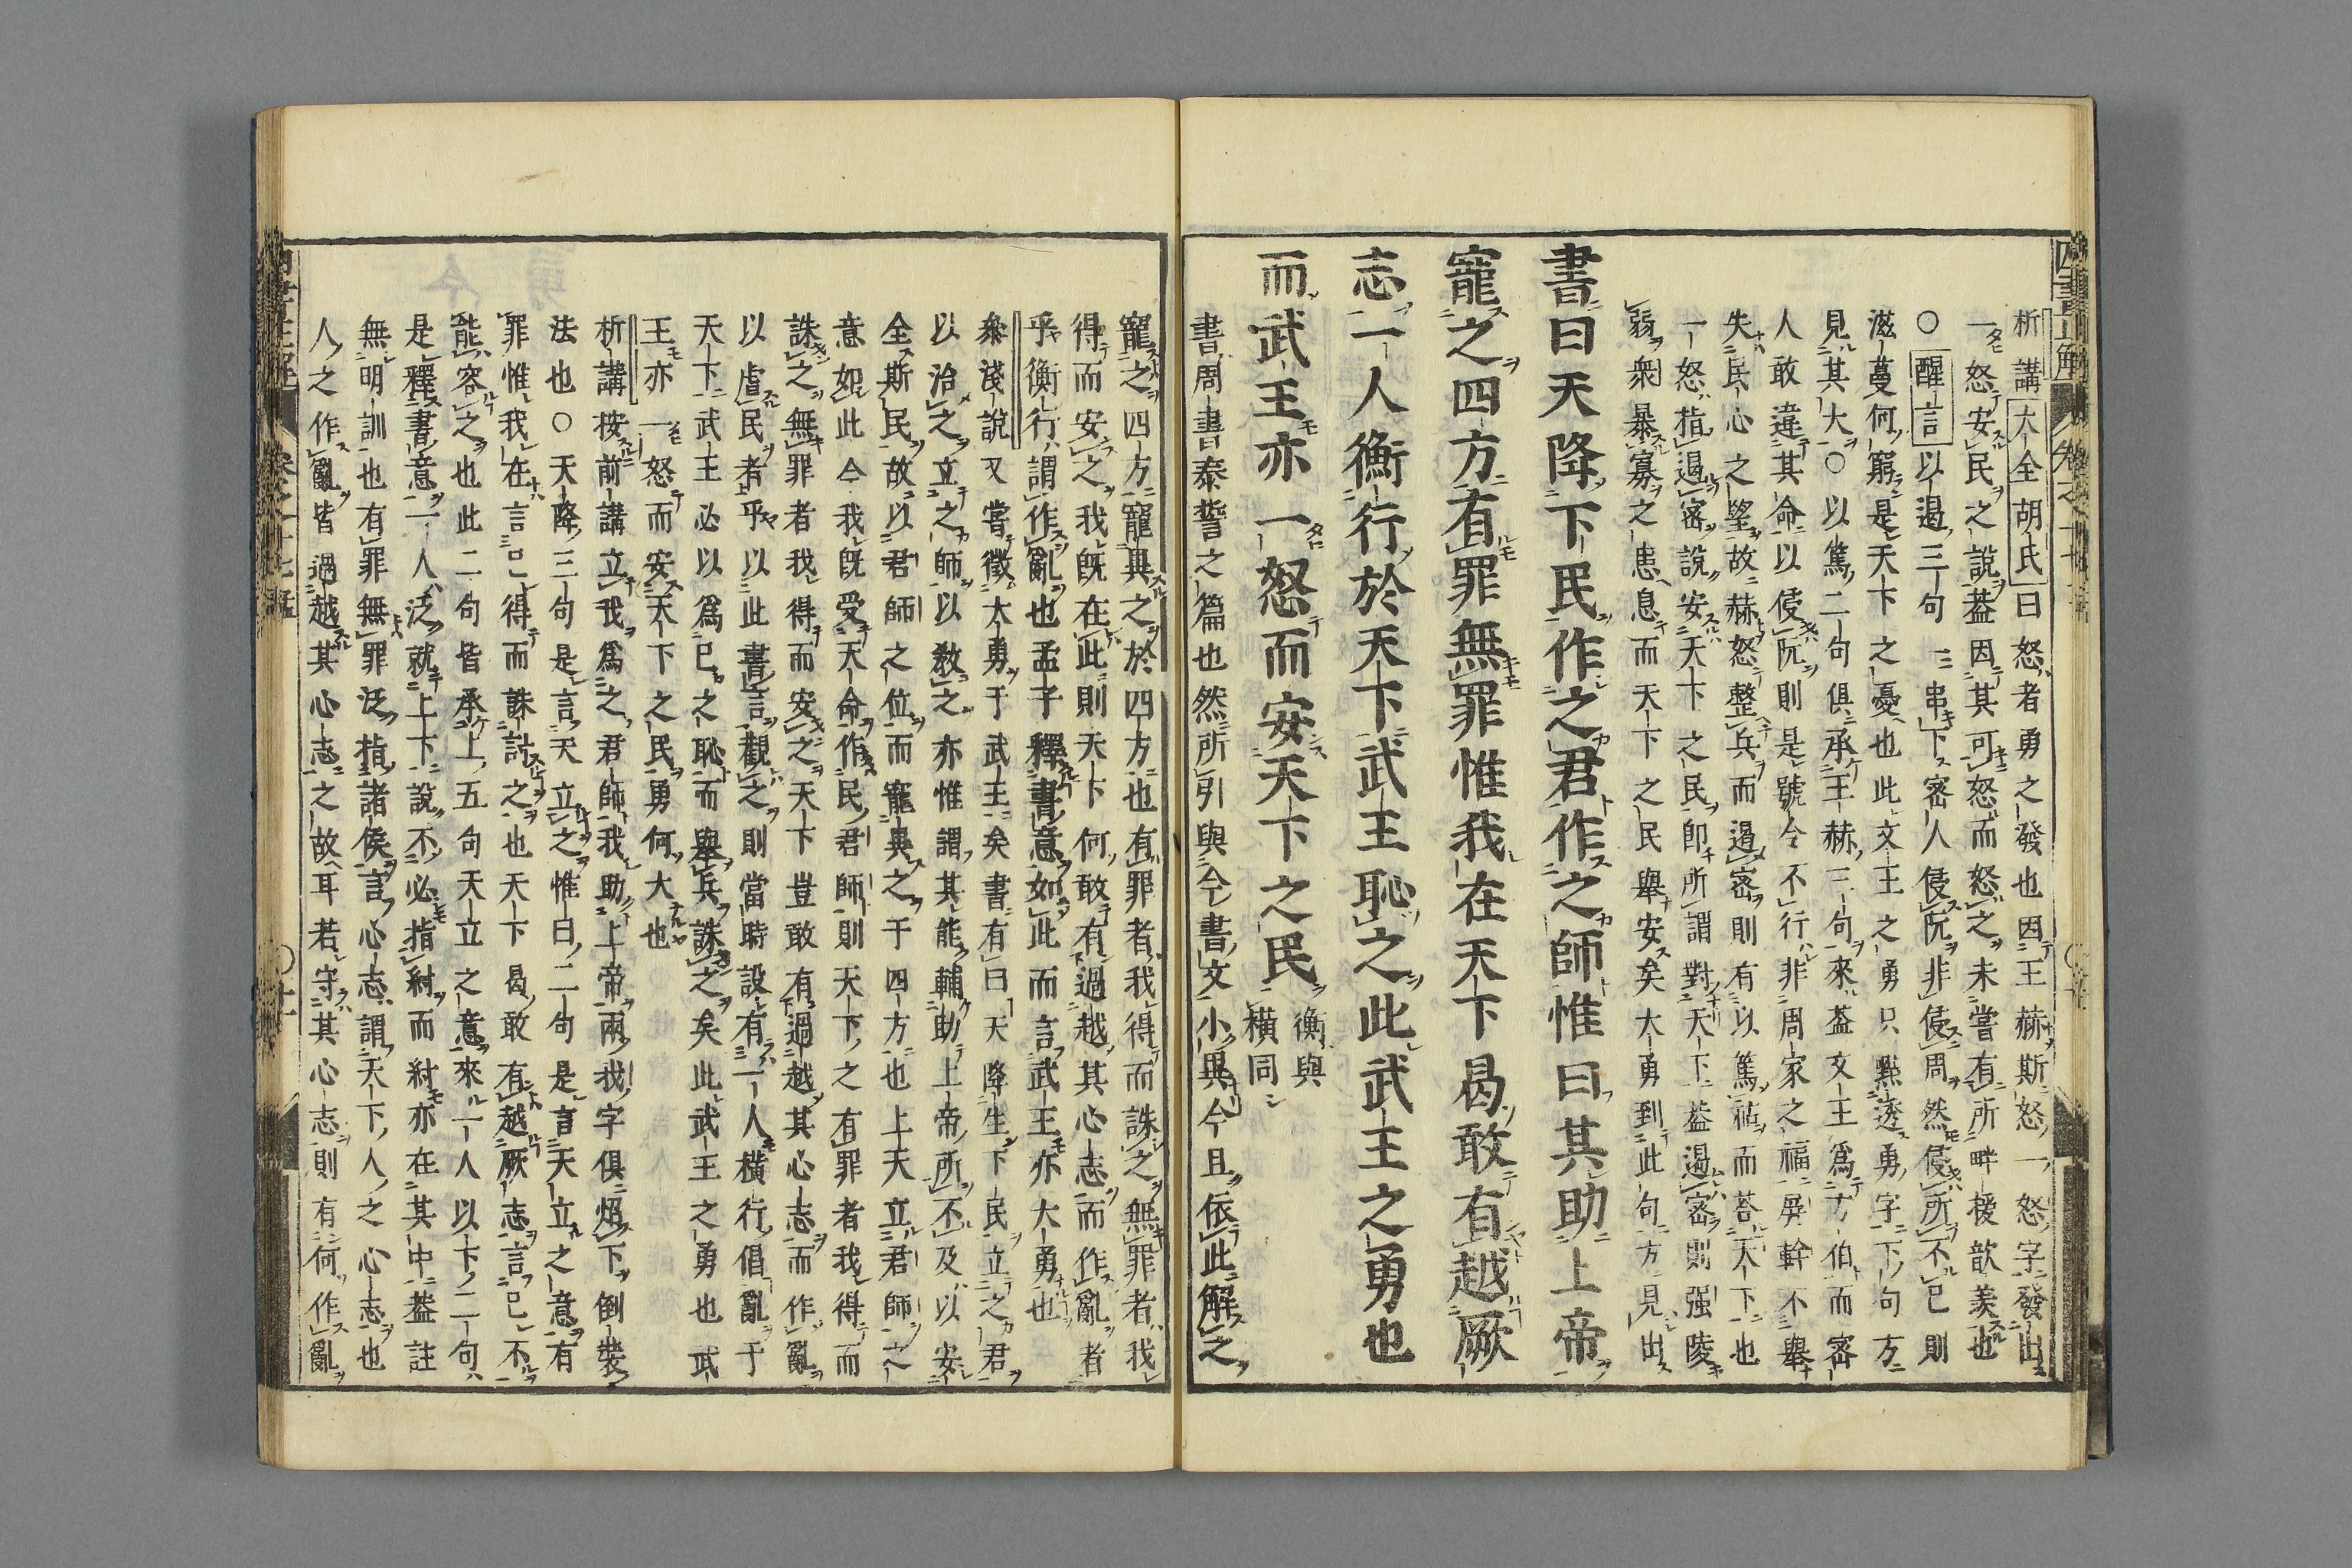 析講大全胡氏曰怒者勇之發也因王赫斯怒一怒字發出
一怒安民之說葢因其可怒而怒之未嘗有所畔援歆羨也
○醒言以遏三句一串下密人侵阮非侵周然侵所不已則
滋蔓何窮是天下之憂也此文王之勇只點透勇字下句方
見其大○以篤二句俱承王赫三句來葢文王爲方伯而密
人敢違其命以侵阮則是號令不行非周家之福屏幹不舉
失民心之望故赫怒整兵而遏密則有以篤祜而荅天下也
一怒指遏密說安天下之民卽所謂對天下葢遏密則强陵
弱衆暴寡之患息而天下之民舉安矣大勇到此句方見出
書曰天降下民作之君作之師惟曰其助上帝
寵之四方有罪無罪惟我在天下曷敢有越厥
志一人衡行於天下武王恥之此武王之勇也
而武王亦一怒而安天下之民衡與橫同
書周書泰誓之篇也然所引與今書文小異今且依此解之
寵之四方寵異之於四方也有罪者我得而誅之無罪者我
得而安之我旣在此則天下何敢有過越其心志而作亂者
乎衡行謂作亂也孟子釋書意如此而言武王亦大勇也
叅淺說又嘗徵大勇于武王矣書有曰天降生下民立之君
以治之立之師以敎之亦惟謂其能輔助上帝所不及以安
全斯民故以君師之位而寵異之于四方也上天立君師之
意如此今我旣受天命作民君師則天下之有罪者我得而
誅之無罪者我得而安之天下豈敢有過越其心志而作亂
以虐民者乎以此書言觀之則當時設有一人橫行倡亂于
天下武王必以爲己之恥而舉兵誅之矣此武王之勇也武
王亦一怒而安天下之民勇何大也
析講按前講立我爲之君師我助上帝兩我字俱炤下倒裝
法也○天降三句是言天立之惟曰二句是言天立之意有
罪惟我在言己得而誅討之也天下曷敢有越厥志言己不
能容之也此二句皆承上五句天立之意來一人以下二句
是釋書意一人泛就上下說不必指紂而紂亦在其中葢註
無明訓也有罪無罪泛指諸侯言心志謂天下人之心志也
人之作亂皆過越其心志之故耳若守其心志則有何作亂